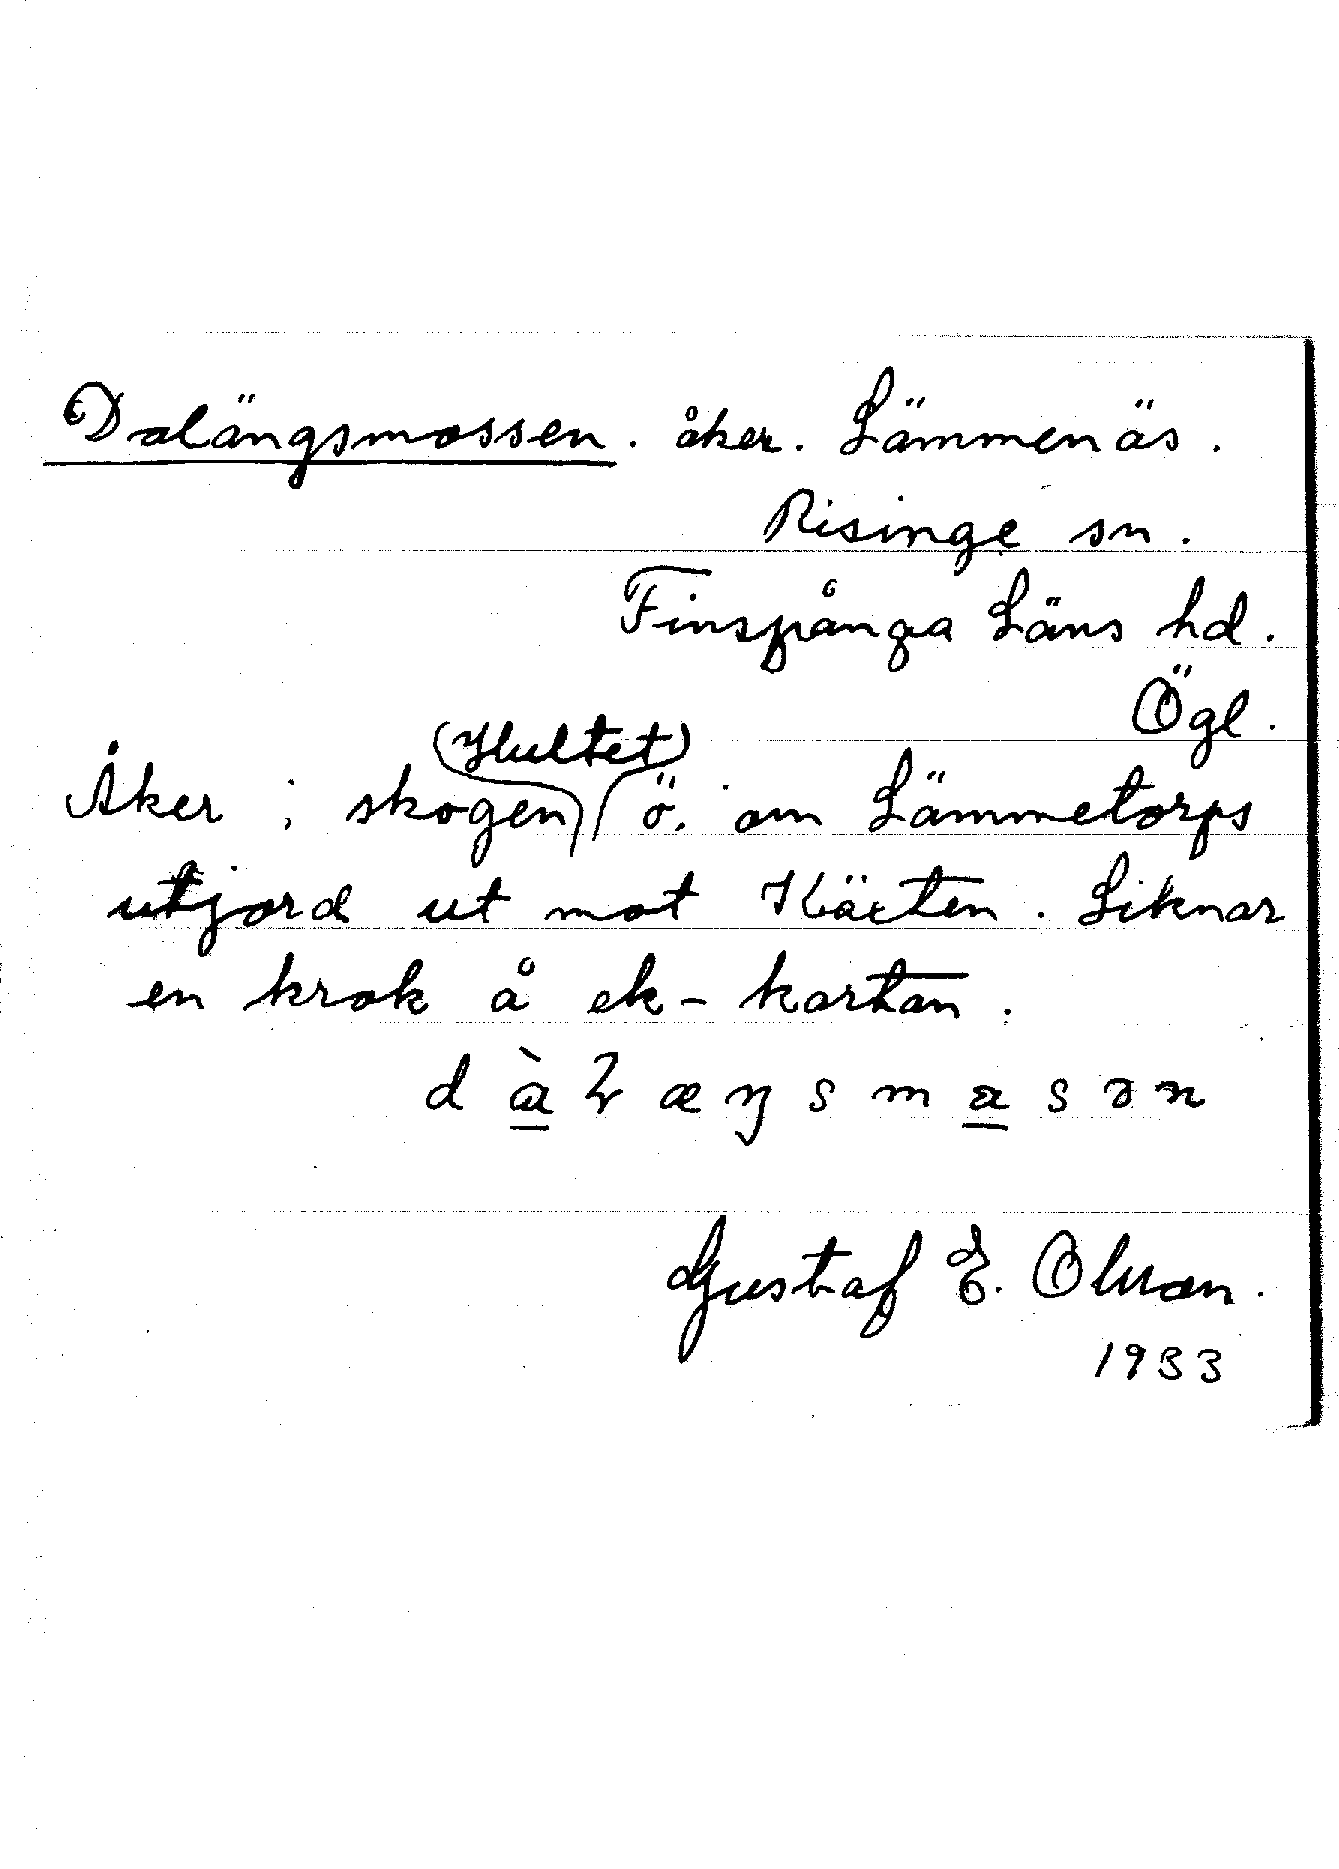 Dalängsmossen. åker. Lämmenäs.
Risinge sn.
Finspånga Läns hd.
Ögl.
(Hultet)
Åker i skogen ö. om Lämmetorps
utjord ut mot Kärten. Liknar
en krok å ek-kartan.
d à l æ ŋ s m a s ə n
Gustaf E. Olsson.
1933